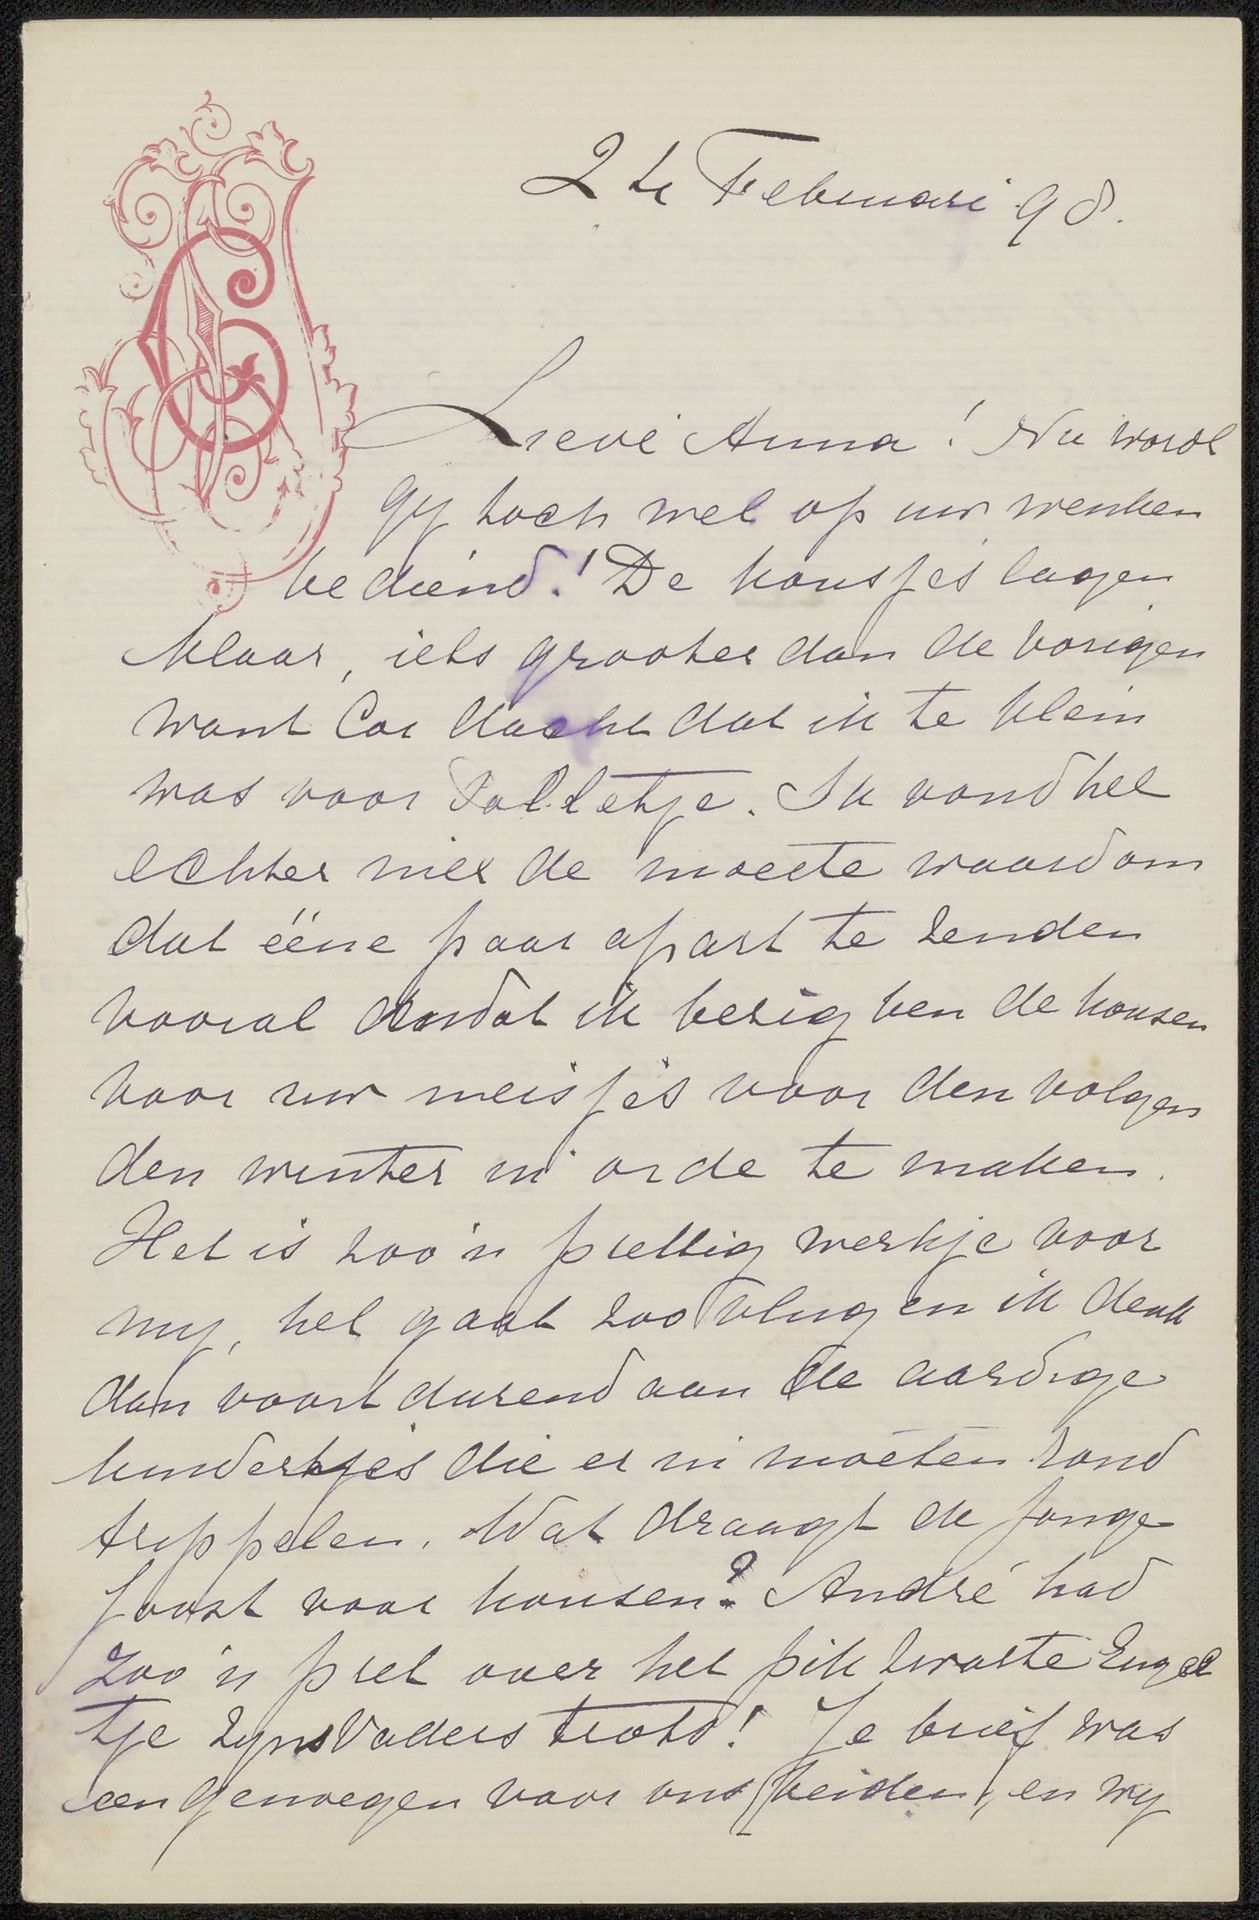 2de Februari 98.
Lieve Anna! Nu wordt
gy toch wel op uw wenken
bediend! De kousjes lagen
klaar, iets grooter dan de vorigen
want Cor dacht dat ik te klein
was voor Dolletje. Ik vond het
echter niet de moeite waard om
dat ééne paar apart te zenden
vooral omdat ik bezig ben de kousen
voor uw meisjes voor den volgen
den winter in orde te maken.
Het is zoo'n prettig werkje voor
my, het gaat zoo vlug en ik denk
dan voortdurend aan de aardige
kindertjes die er in moeten rond
trippelen. Wat draagt de jonge
Joost voor kousen? André had
zoo'n pret over het pik zwarte Engel
tje zyns Vaders trots! Je brief was
een genoegen voor ons beiden, en wy